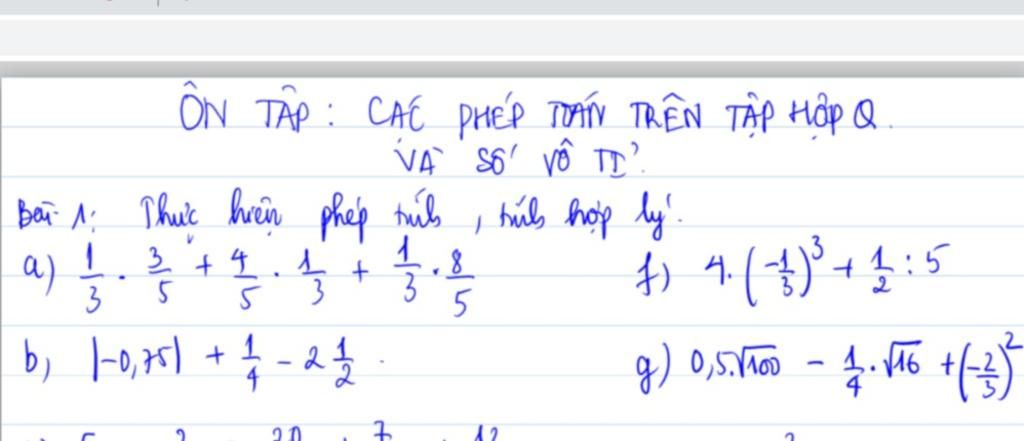 ÔN TẬP : CÁC PHÉP TOÁN TRÊN TẬP HỢP Q.
VÀ SỐ VÔ TỈ.
Bài 1: Thực hiện phép tính, tính hợp lý.
a) 1/3 . 3/5 + 4/5 . 1/3 + 1/3 . 8/5 f) 4.(-1/3)^3 + 1/2 : 5
b) |-0,75| + 1/4 - 2 1/2 . g) 0,5.√100 - 1/4 . √16 + (-2/3)^2